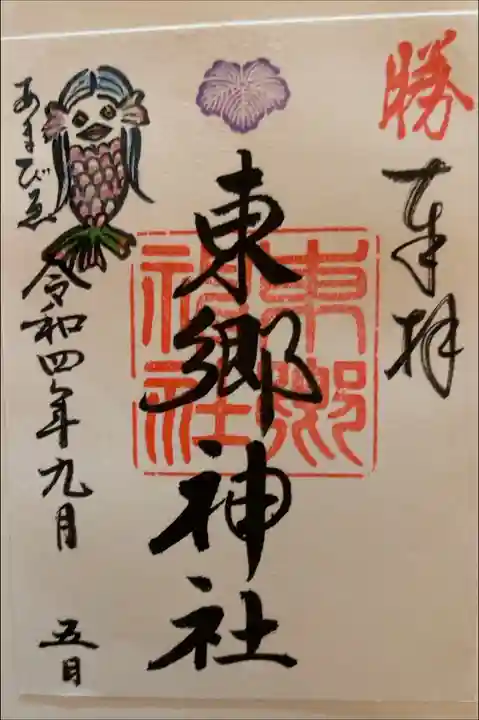 勝
奉拝
東郷神社
東郷
神社
あまびゑ
令和四年九月 五日